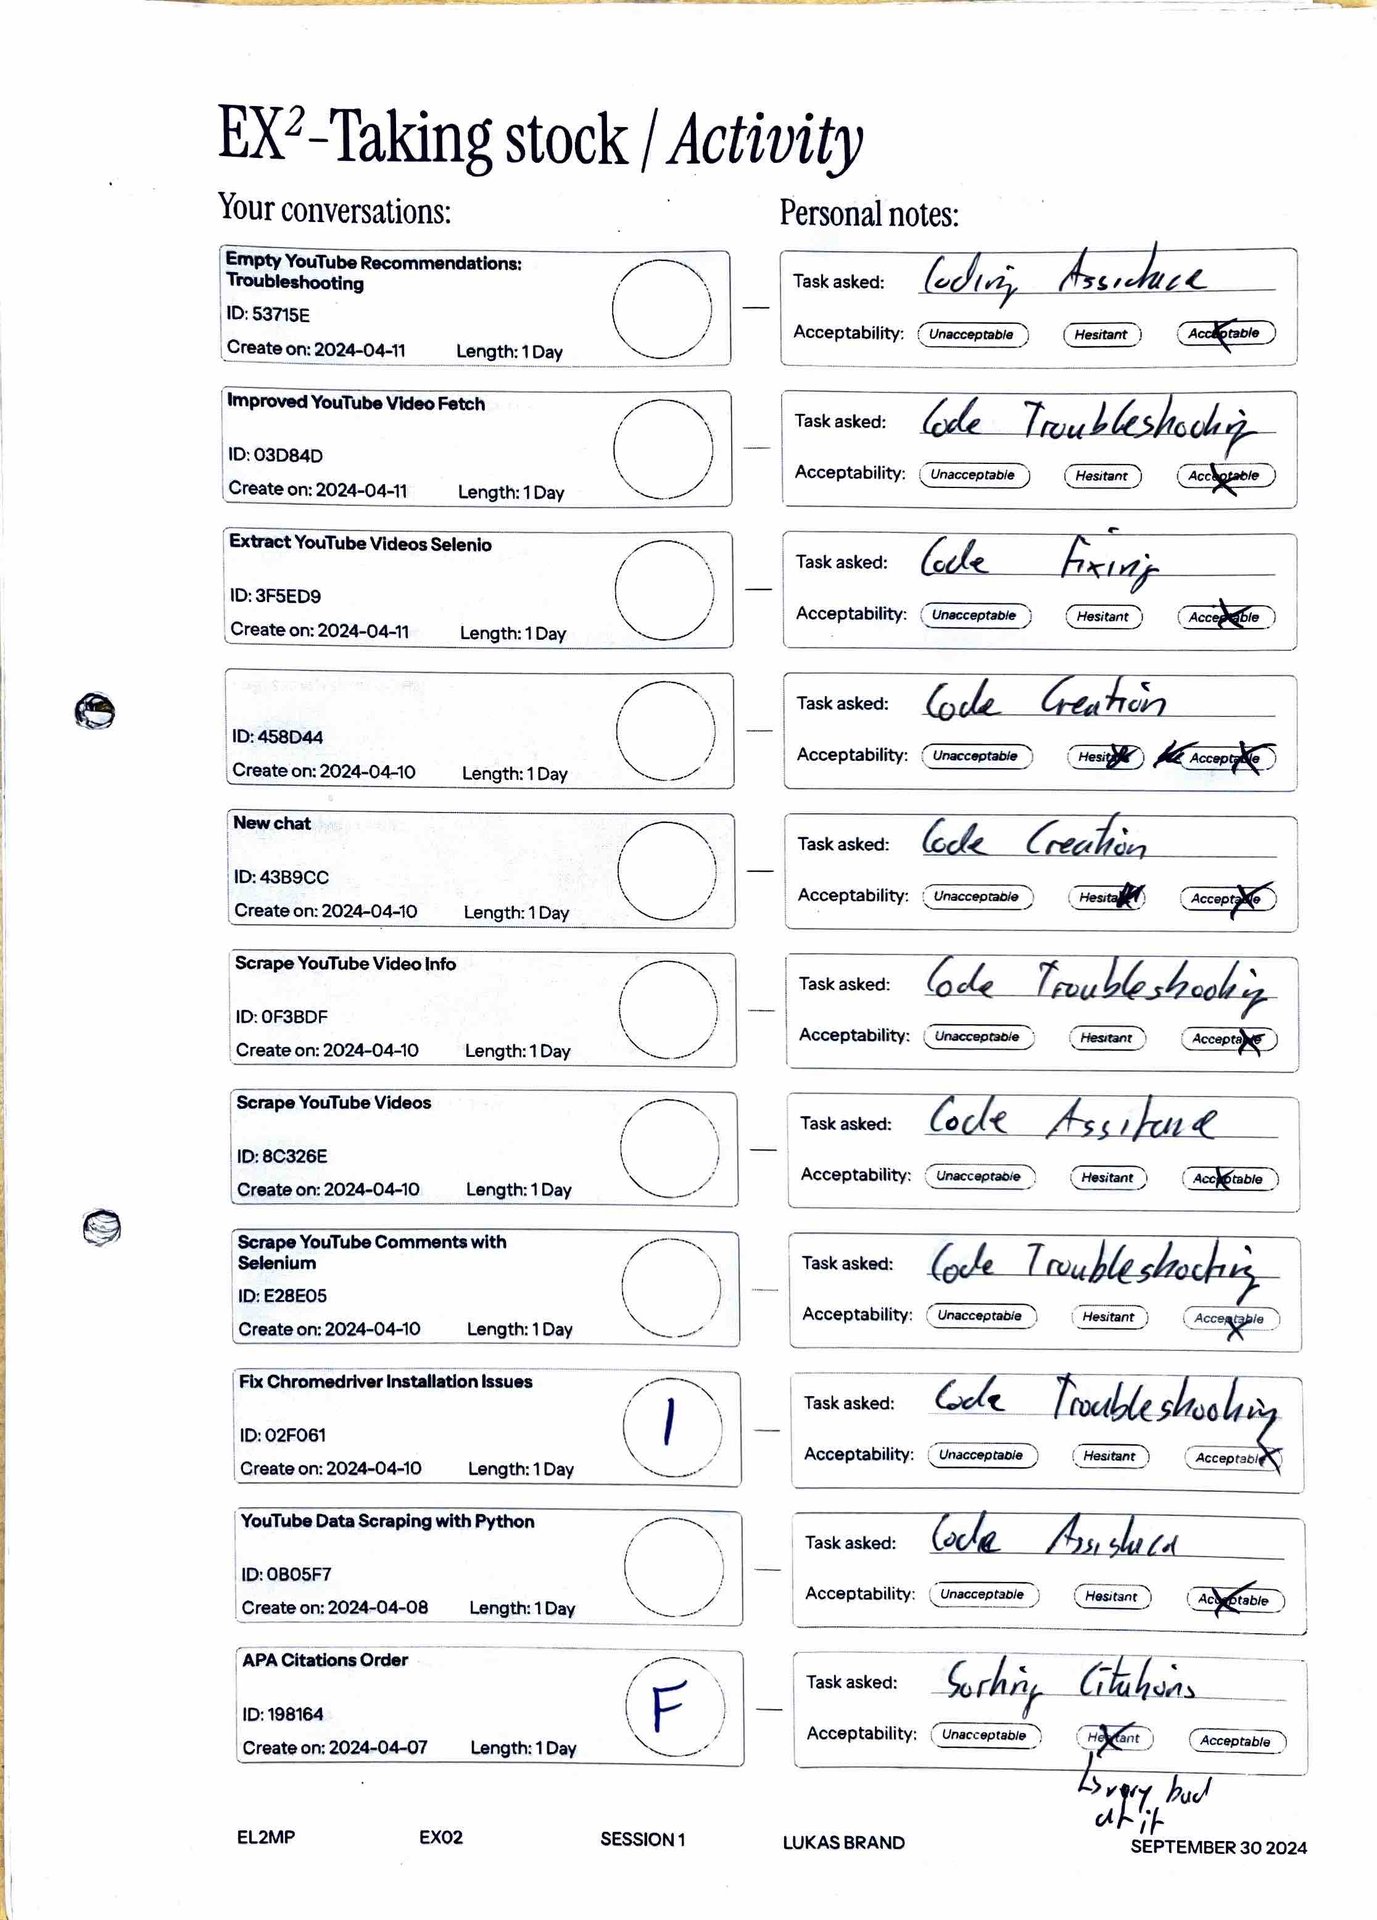 EX²-Taking stock / Activity
Your conversations:
Personal notes:
Empty YouTube Recommendations:
Troubleshooting
ID: 53715E
Create on: 2024-04-11 Length: 1 Day
Task asked: Coding Assistance
Acceptability: Unacceptable Hesitant Acceptable
Improved YouTube Video Fetch
ID: 03D84D
Create on: 2024-04-11 Length: 1 Day
Task asked: Code Troubleshooting
Acceptability: Unacceptable Hesitant Acceptable
Extract YouTube Videos Selenio
ID: 3F5ED9
Create on: 2024-04-11 Length: 1 Day
Task asked: Code Fixing
Acceptability: Unacceptable Hesitant Acceptable
ID: 458D44
Create on: 2024-04-10 Length: 1 Day
Task asked: Code Creation
Acceptability: Unacceptable Hesitant Acceptable
New chat
ID: 43B9CC
Create on: 2024-04-10 Length: 1 Day
Task asked: Code Creation
Acceptability: Unacceptable Hesitant Acceptable
Scrape YouTube Video Info
ID: 0F3BDF
Create on: 2024-04-10 Length: 1 Day
Task asked: Code Troubleshooting
Acceptability: Unacceptable Hesitant Acceptable
Scrape YouTube Videos
ID: 8C326E
Create on: 2024-04-10 Length: 1 Day
Task asked: Code Assitance
Acceptability: Unacceptable Hesitant Acceptable
Scrape YouTube Comments with
Selenium
ID: E28E05
Create on: 2024-04-10 Length: 1 Day
Task asked: Code Troubleshooting
Acceptability: Unacceptable Hesitant Acceptable
Fix Chromedriver Installation Issues
ID: 02F061
Create on: 2024-04-10 Length: 1 Day
I
Task asked: Code Troubleshooting
Acceptability: Unacceptable Hesitant Acceptable
YouTube Data Scraping with Python
ID: 0B05F7
Create on: 2024-04-08 Length: 1 Day
Task asked: Code Assistance
Acceptability: Unacceptable Hesitant Acceptable
APA Citations Order
ID: 198164
Create on: 2024-04-07 Length: 1 Day
F
Task asked: Sorting Citations
Acceptability: Unacceptable Hesitant Acceptable
↳ very bad
at it
EL2MP EX02 SESSION 1 LUKAS BRAND SEPTEMBER 30 2024